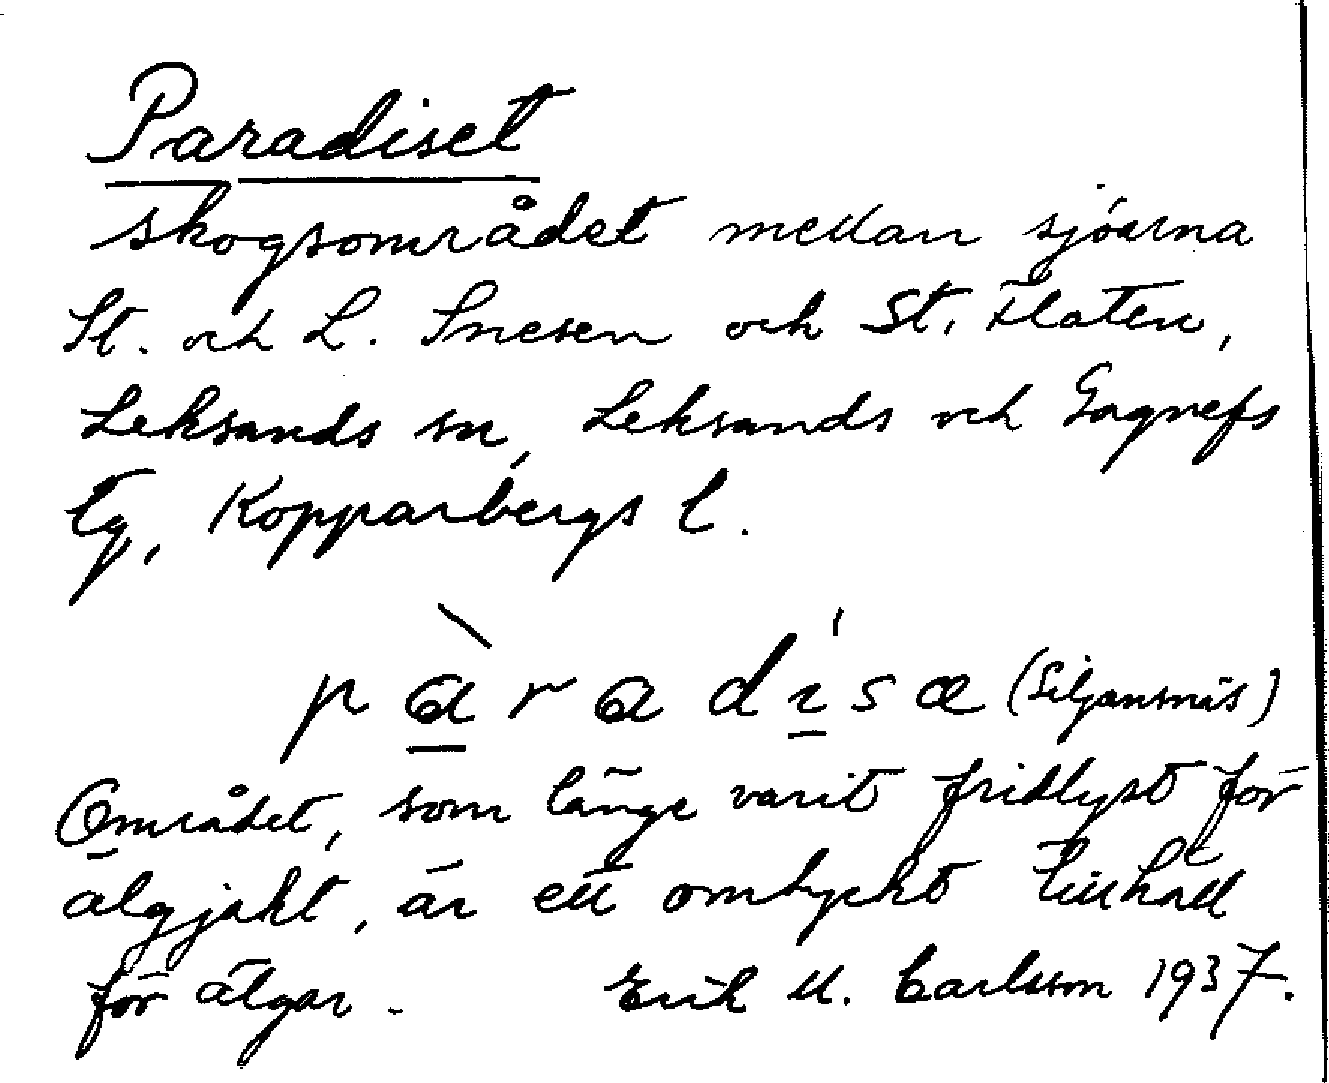 Paradiset
skogsområdet mellan sjöarna
St. och L. Snesen och St. Flaten,
Leksands sn, Leksands och Gagnefs
tg, Kopparbergs l.
pàradísæ (Siljansnäs)
Området, som länge varit fridlyst för
älgjakt, är ett omtyckt tillhåll
för älgar. Erik U. Carlsson 1937.